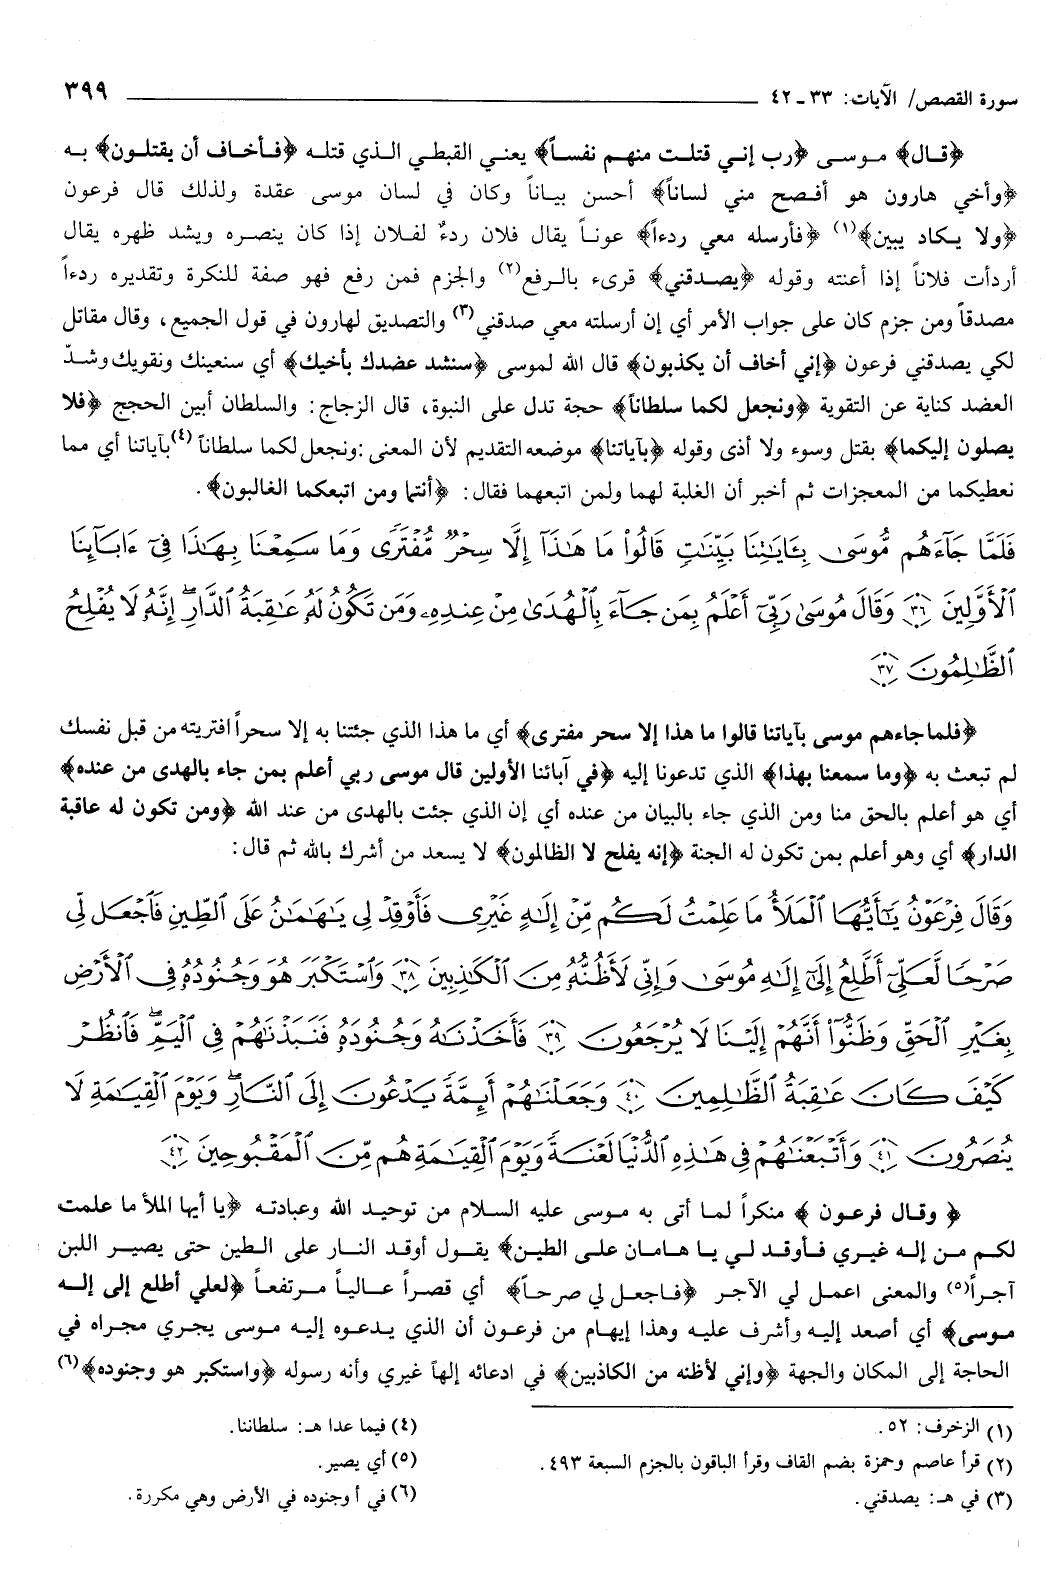 سورة القصص/ الآيات: ٣٣ ـ ٤٢ ٣٩٩
﴿قـال﴾ مـوسـى ﴿رب إنـي قتلـت منهـم نفسـاً﴾ يعنـي القبطـي الـذي قتلـه ﴿فـأخـاف أن يقتلـون﴾ بـه
﴿وأخي هارون هو أفـصح مني لساناً﴾ أحسن بيـاناً وكان في لسان موسى عقدة ولذلك قال فرعون
﴿ولا يـكاد يبين﴾(١) ﴿فأرسله معي ردءاً﴾ عونـاً يقال فلان ردءٌ لفـلان إذا كان ينصـره ويشد ظهره يقال
أردأت فلاناً إذا أعنته وقوله ﴿يصـدقني﴾ قرىء بالـرفع(٢) والجزم فمن رفع فهو صفة للنكرة وتقديره ردءاً
مصدقاً ومن جزم كان على جواب الأمر أي إن أرسلته معي صدقني(٣) والتصديق لهارون في قول الجميع، وقال مقاتل
لكي يصدقني فرعون ﴿إني أخاف أن يكذبون﴾ قال الله لموسى ﴿سنشد عضدك بأخيك﴾ أي سنعينك ونقويك وشـدّ
العضد كناية عن التقوية ﴿ونجعل لكما سلطاناً﴾ حجة تدل على النبوة، قال الزجاج: والسلطان أبين الحجج ﴿فلا
يصلون إليكما﴾ بقتل وسوء ولا أذى وقوله ﴿بآياتنا﴾ موضعه التقديم لأن المعنى: ونجعل لكما سلطاناً(٤) بآياتنا أي مما
نعطيكما من المعجزات ثم أخبر أن الغلبة لهما ولمن اتبعهما فقال: ﴿أنتما ومن اتبعكما الغالبون﴾.
فَلَمَّا جَآءَهُم مُّوسَىٰ بِـَٔايَـٰتِنَا بَيِّنَـٰتٍ قَالُوا۟ مَا هَـٰذَآ إِلَّا سِحْرٌ مُّفْتَرًى وَمَا سَمِعْنَا بِهَـٰذَا فِىٓ ءَابَآئِنَا
ٱلْأَوَّلِينَ ٣٦ وَقَالَ مُوسَىٰ رَبِّىٓ أَعْلَمُ بِمَن جَآءَ بِٱلْهُدَىٰ مِنْ عِندِهِۦ وَمَن تَكُونُ لَهُۥ عَـٰقِبَةُ ٱلدَّارِ ۖ إِنَّهُۥ لَا يُفْلِحُ
ٱلظَّـٰلِمُونَ ٣٧
﴿فلما جاءهم موسى بآياتنا قالوا ما هذا إلا سحر مفترى﴾ أي ما هذا الذي جئتنا به إلا سحراً افتريته من قبل نفسك
لم تبعث به ﴿وما سمعنا بهذا﴾ الذي تدعونا إليه ﴿في آبائنا الأولين قال موسى ربي أعلم بمن جاء بالهدى من عنده﴾
أي هو أعلم بالحق منا ومن الذي جاء بالبيان من عنده أي إن الذي جئت بالهدى من عند الله ﴿ومن تكون له عاقبة
الدار﴾ أي وهو أعلم بمن تكون له الجنة ﴿إنه يفلح لا الظالمون﴾ لا يسعد من أشرك بالله ثم قال:
وَقَالَ فِرْعَوْنُ يَـٰٓأَيُّهَا ٱلْمَلَأُ مَا عَلِمْتُ لَكُم مِّنْ إِلَـٰهٍ غَيْرِى فَأَوْقِدْ لِى يَـٰهَـٰمَـٰنُ عَلَى ٱلطِّينِ فَٱجْعَل لِّى
صَرْحًا لَّعَلِّىٓ أَطَّلِعُ إِلَىٰٓ إِلَـٰهِ مُوسَىٰ وَإِنِّى لَأَظُنُّهُۥ مِنَ ٱلْكَـٰذِبِينَ ٣٨ وَٱسْتَكْبَرَ هُوَ وَجُنُودُهُۥ فِى ٱلْأَرْضِ
بِغَيْرِ ٱلْحَقِّ وَظَنُّوٓا۟ أَنَّهُمْ إِلَيْنَا لَا يُرْجَعُونَ ٣٩ فَأَخَذْنَـٰهُ وَجُنُودَهُۥ فَنَبَذْنَـٰهُمْ فِى ٱلْيَمِّ ۖ فَٱنظُرْ
كَيْفَ كَانَ عَـٰقِبَةُ ٱلظَّـٰلِمِينَ ٤٠ وَجَعَلْنَـٰهُمْ أَئِمَّةً يَدْعُونَ إِلَى ٱلنَّارِ ۖ وَيَوْمَ ٱلْقِيَـٰمَةِ لَا
يُنصَرُونَ ٤١ وَأَتْبَعْنَـٰهُمْ فِى هَـٰذِهِ ٱلدُّنْيَا لَعْنَةً ۖ وَيَوْمَ ٱلْقِيَـٰمَةِ هُم مِّنَ ٱلْمَقْبُوحِينَ ٤٢
﴿ وقـال فرعـون ﴾ منكراً لمـا أتى به مـوسى عليه السـلام من توحيـد الله وعبادتـه ﴿يا أيها الملأ ما علمت
لكـم مـن إلـه غيـري فـأوقـد لـي يـا هـامـان علـى الطيـن﴾ يقـول أوقـد النـار علـى الـطين حتى يصيـر اللبن
آجـراً(٥) والمعنى اعمـل لي الآجـر ﴿فـاجعـل لي صرحـاً﴾ أي قصـراً عـاليـاً مـرتفعـاً ﴿لعلي أطلع إلى إلـه
مـوسى﴾ أي أصعد إليـه وأشرف عليـه وهذا إيهـام من فرعـون أن الذي يـدعوه إليـه مـوسى يجري مجـراه في
الحاجة إلى المكان والجهة ﴿وإني لأظنه من الكاذبين﴾ في ادعائه إلهاً غيري وأنه رسوله ﴿واستكبر هو وجنوده﴾(٦)
(١) الزخرف: ٥٢.
(٢) قرأ عاصم وحمزة بضم القاف وقرأ الباقون بالجزم السبعة ٤٩٣.
(٣) في هـ: يصدقني.
(٤) فيما عدا هـ: سلطاننا.
(٥) أي يصير.
(٦) في أ وجنوده في الأرض وهي مكررة.